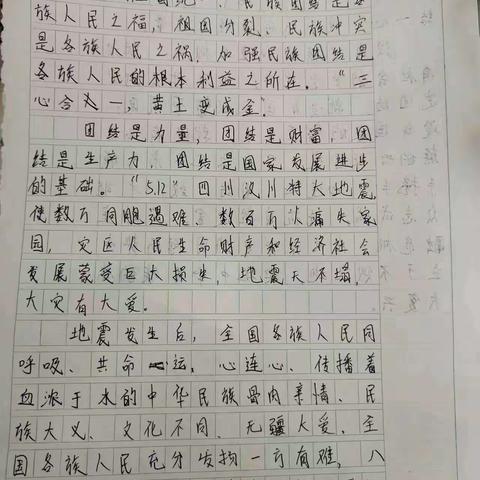 族人民之福，祖国分裂、民族冲突
是各族人民之祸，加强民族团结是
各族人民的根本利益之所在。“三
心合一，黄土变成金”.
团结是力量，团结是财富，团
结是生产力，团结是国家发展进步
的基础。“5.12”四川汶川特大地震，
使数万同胞遇难、数百万人痛失家
园，灾区人民生命财产和经济社会
发展蒙受巨大损失，地震天不塌，
大灾有大爱。
地震发生后，全国各族人民同
呼吸、共命运，心连心、传播着
血浓于水的中华民族骨肉亲情、民
族大义、文化不同、无疆大爱、全
国各族人民充分发扬一方有难，八